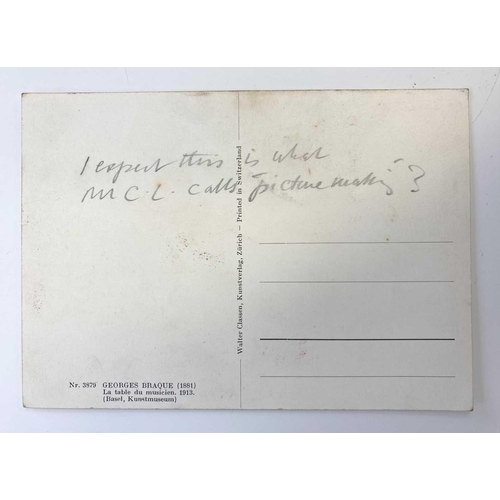 I expect this is what
M C L. calls "picture making"?
Walter Classen, Kunstverlag, Zürich – Printed in Switzerland
Nr. 3879 GEORGES BRAQUE (1881)
La table du musicien. 1913.
(Basel, Kunstmuseum)